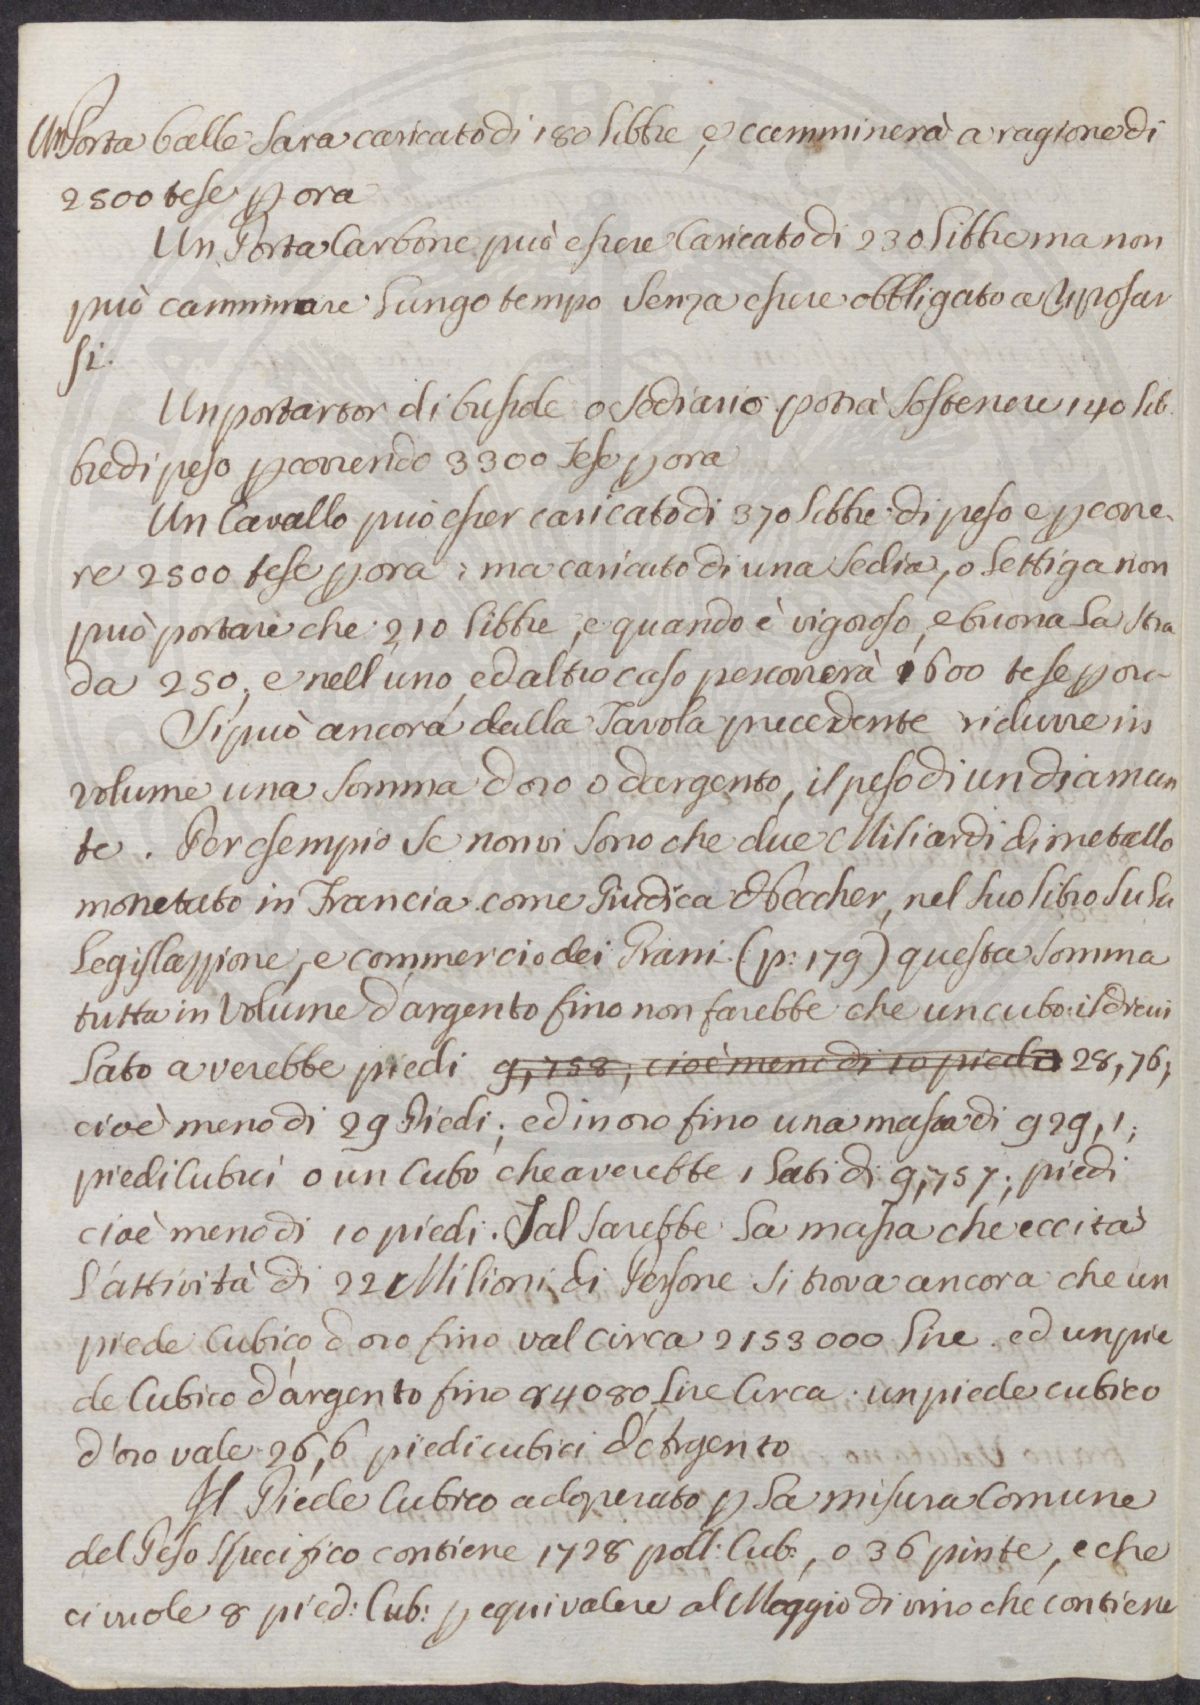 Un Porta balle sara caricato di 180 libbre, e camminerà a ragione di
2500 tese p ora
Un Porta Carbone può essere Caricato di 230 libbre ma non
può camminare lungo tempo senza essere obbligato a riposar
si.
Un portartor di busside o sediario potrà sostenere 140 lib
bre di peso pcorrendo 3300 Tese p ora
Un Cavallo può esser caricato di 370 libbre di peso e pcorre-
re 2500 tese p ora ; ma caricato di una sedia, o lettiga non
può portare che 210 libbre, e quando è vigoroso, e buona la stra
da 250; e nell'uno, ed altro caso percorrerà 1600 tese p ora
Si può ancora dalla Tavola precedente ridurre in
volume una somma d'oro o d'argento, il peso di un diaman
te. Per esempio se non vi sono che due Miliardi di metallo
monetato in Francia come Giudica Neccher, nel suo libro su la
Legislazzione, e commercio dei Grani (p: 179) questa somma
tutta in Volume d'argento fino non farebbe che un cubo: il di cui
lato averebbe piedi 9,758, cioè meno di 10 piedi 28,76;
cioè meno di 29 Piedi; ed in oro fino una massa di 929,1;
piedi Cubici o un Cubo che averebbe i lati di 9,757; piedi
cioè meno di 10 piedi. Tal sarebbe la massa che eccita
l'attività di 22 Milioni di Persone si trova ancora che un
piede Cubico d'oro fino val circa 2153000 lire. ed un pie
de Cubico d'argento fino 84080 lire Circa. un piede cubico
d'oro vale 26,6 piedi cubici d'Argento
Il Piede Cubico adoperato p la misura Comune
del Peso Specifico contiene 1728 poll: Cub:, o 36 pinte, e che
ci vuole 8 pied: Cub: p equivalere al Moggio di vino che contiene